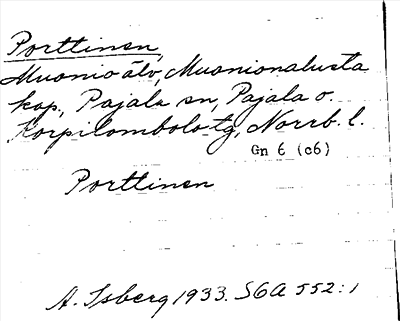 Porttinen,
Muonio älv, Muonionalusta
kap, Pajala sn, Pajala o.
Korpilombolo tg, Norrb. l.
Gn 6 (c6)
Porttinen
A. Isberg 1933. SGA 552:1